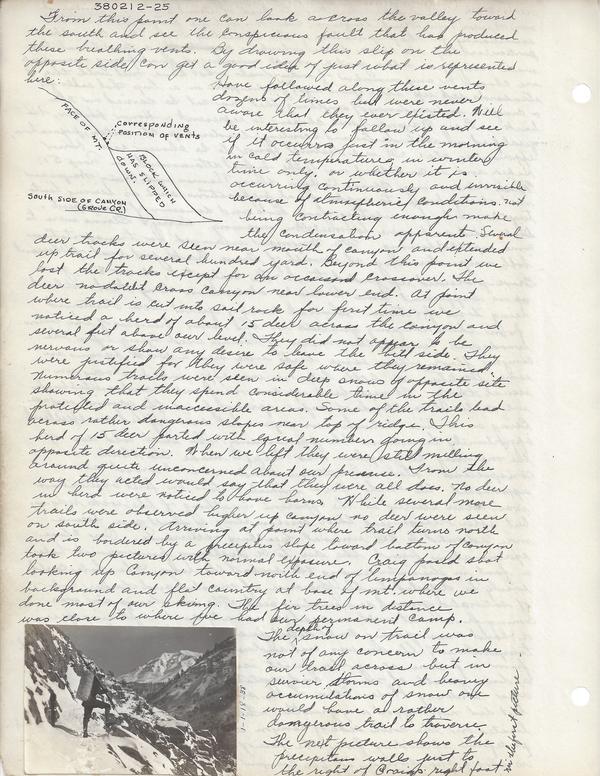 380212-25
From this point one can look across the valley toward
the south and see the conspicuous fault that has produced
these breathing vents. By drawing this slip on the
opposite side, can get a good idea of just what is represented
here:
FACE OF MT.
CORRESPONDING
POSITION OF VENTS
BLOCK WHICH
HAS SLIPPED
DOWN.
SOUTH SIDE OF CANYON
(GROVE CR.)
Have followed along these vents
dozens of times but were never
aware that they ever existed. Will
be interesting to follow up and see
if it occurrs just in the morning
in cold temperatures, in winter
time only, or whether it is
occurring continuously and invisible
because of atmospheric conditions not
being contracting enough make
the condensation apparent. Several
deer tracks were seen near mouth of canyon and extended
up trail for several hundred yard. Beyond this point we
lost the tracks except for an occasional crossover. The
deer no doubt cross canyon near lower end. At point
where trail is cut into soil rock for first time we
noticed a herd of about 15 deer across the canyon and
several feet above our level. They did not appear to be
nervous or show any desire to leave the hill side. They
were justified for they were safe where they remained.
Numerous trails were seen in deep snow of opposite site
showing that they spend considerable time in the
protected and inaccessible areas. Some of the trails lead
across rather dangerous slopes near top of ridge. This
herd of 15 deer parted with equal numbers going in
opposite direction. When we left they were still milling
around quite unconcerned about our presence. From the
way they acted would say that they were all does. No deer
in herd were noticed to have horns. While several more
trails were observed higher up canyon no deer were seen
on south side. Arriving at point where trail turns north
and is bordered by a precipitus slope toward bottom of canyon
took two pictures with normal exposure. Craig posed
looking up Canyon toward north end of Timpanogas in
background and flat country at base of mt. where we
done most of our skiing. The fir trees in distance
was close to where I've had our permanent camp.
The depth of snow on trail was
not of any concern to make
our trail across but in
severer storms and heavy
accumulations of snow one
would have a rather
dangerous trail to traverse.
The next picture shows the
precipitous walls just to
the right of Craigs right foot
in the first picture.